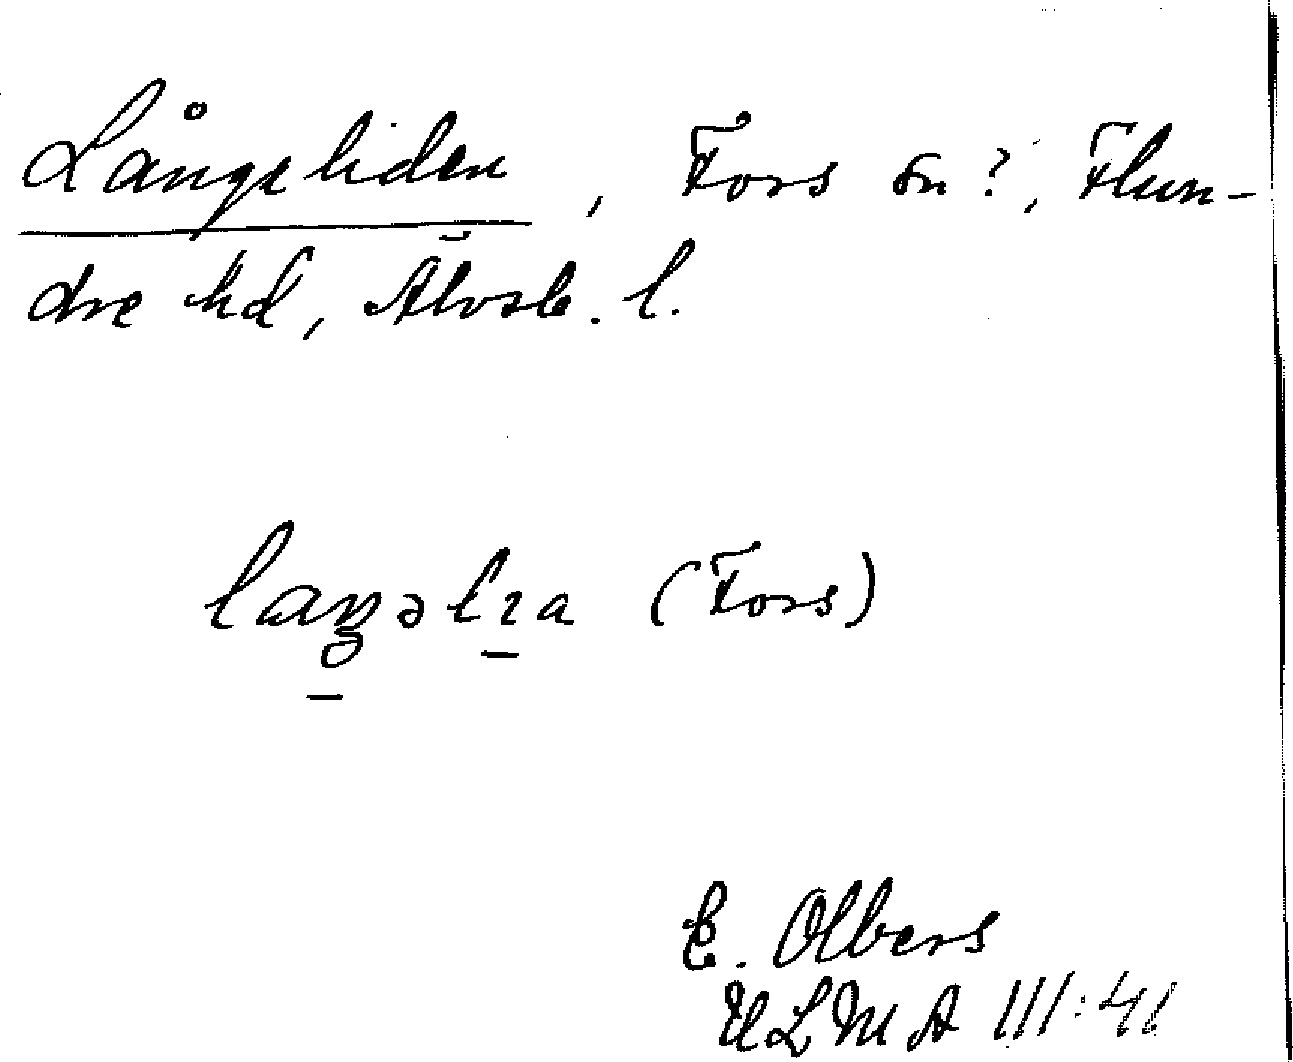 Långeliden, Fors sn?, Flun-
dre hd, Älvsb. l.
laŋəlıa (Fors)
E. Olbers
ULMA III:41